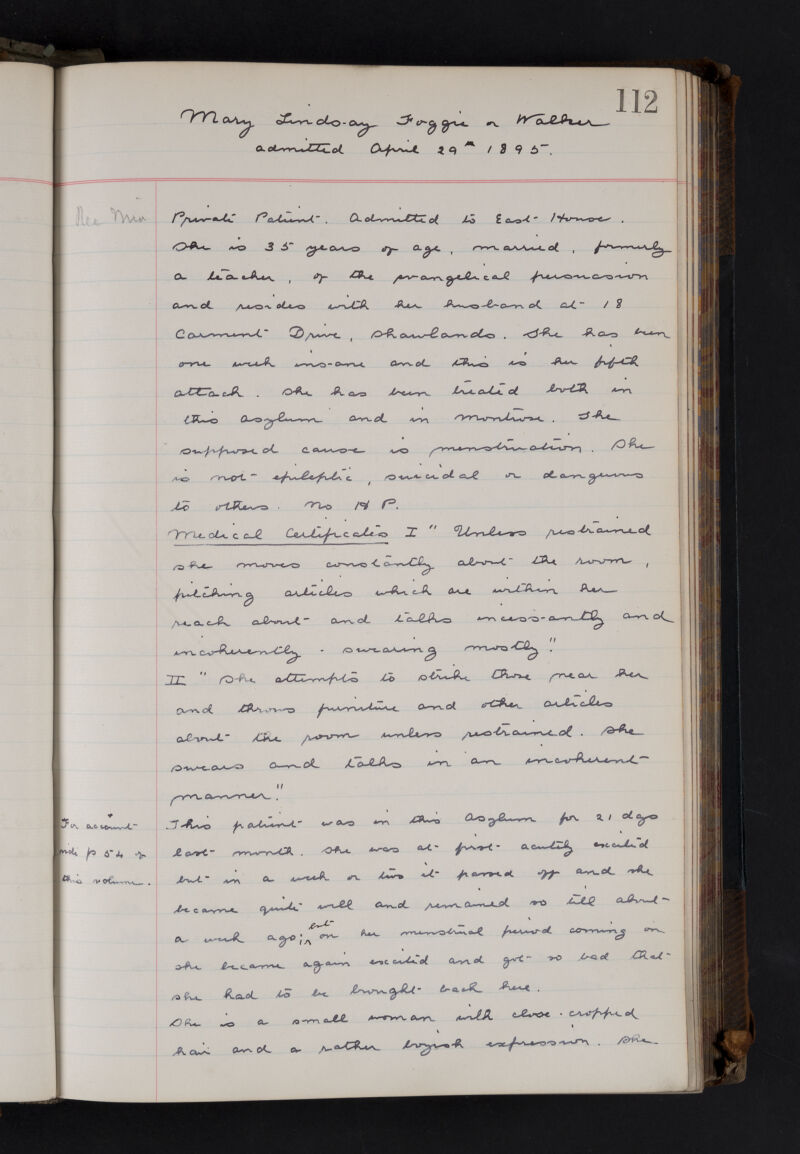 112
Mary Lindsay Foggie or Walker
admitted April 29th 1895.
Private Patient. Admitted to East House.
She is 35 years of age, married, formerly
a teacher, of the evangelical persuasion
and resides with her husband at 18
Carment Drive, Shawlands. She has been
one week insane and this is her fifth
attack. She has been treated both in
this asylum and in Montrose. The
supposed cause is menstruation. She
is not epileptic, suicidal or dangerous
to others. No H P.
Medical Certificates I "Unless restrained
she moves constantly about the room,
pitching articles which are within her
reach about and talks incessantly and
incoherently - swearing mostly."
II "She attempts to strike those near her
and throws furniture and other articles
about the room unless restrained. She
swears and talks in an incoherent
manner."
For account
vide p 54 of
this volume.
This patient was in this Asylum for 21 days
last month. She was at first acutely excited
but in a week or two it passed off and she
became quite well and remained so till about
a week ago; but on her menstrual period coming on
she became again excited and got so bad that
she had to be brought back here.
She is a small woman with close-cropped
hair and a rather boyish expression. She